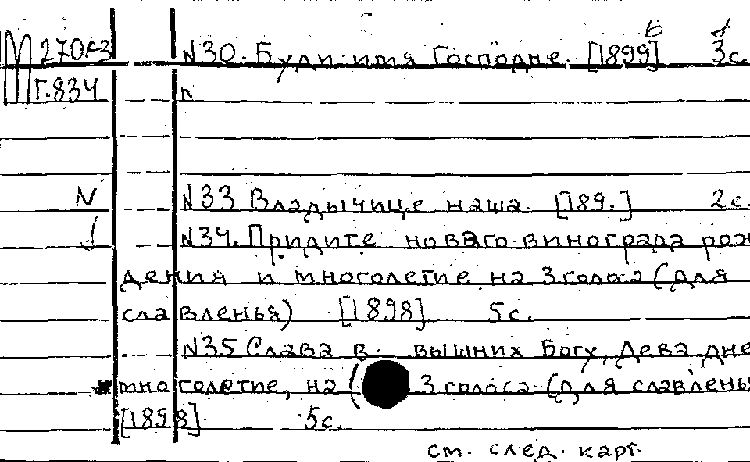 270сз N30. Буди имя Господне. [1899] 3с.
Г.834
N33 Владычице наша. [189.] 2с.
N34. Придите новаго винограда рож
дения и многолетие на 3 голоса (для
славленья) [1898] 5с.
N35 Слава в вышних Богу, Дева дне
многолетие, на 3 голоса (для славлень
[1898] 5с.
см. след. карт.